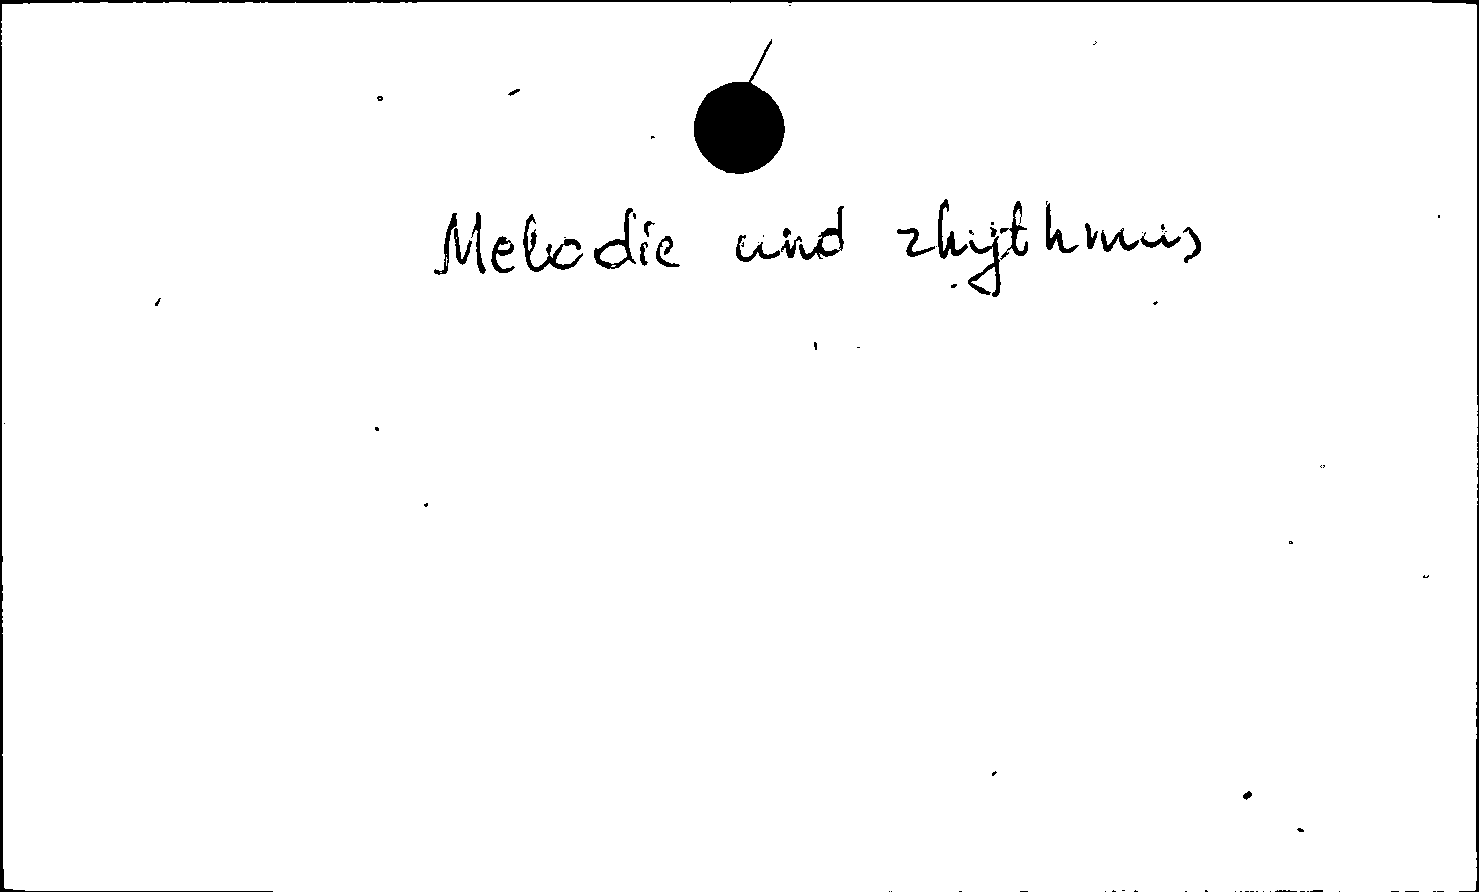 Melodie und rhythmus